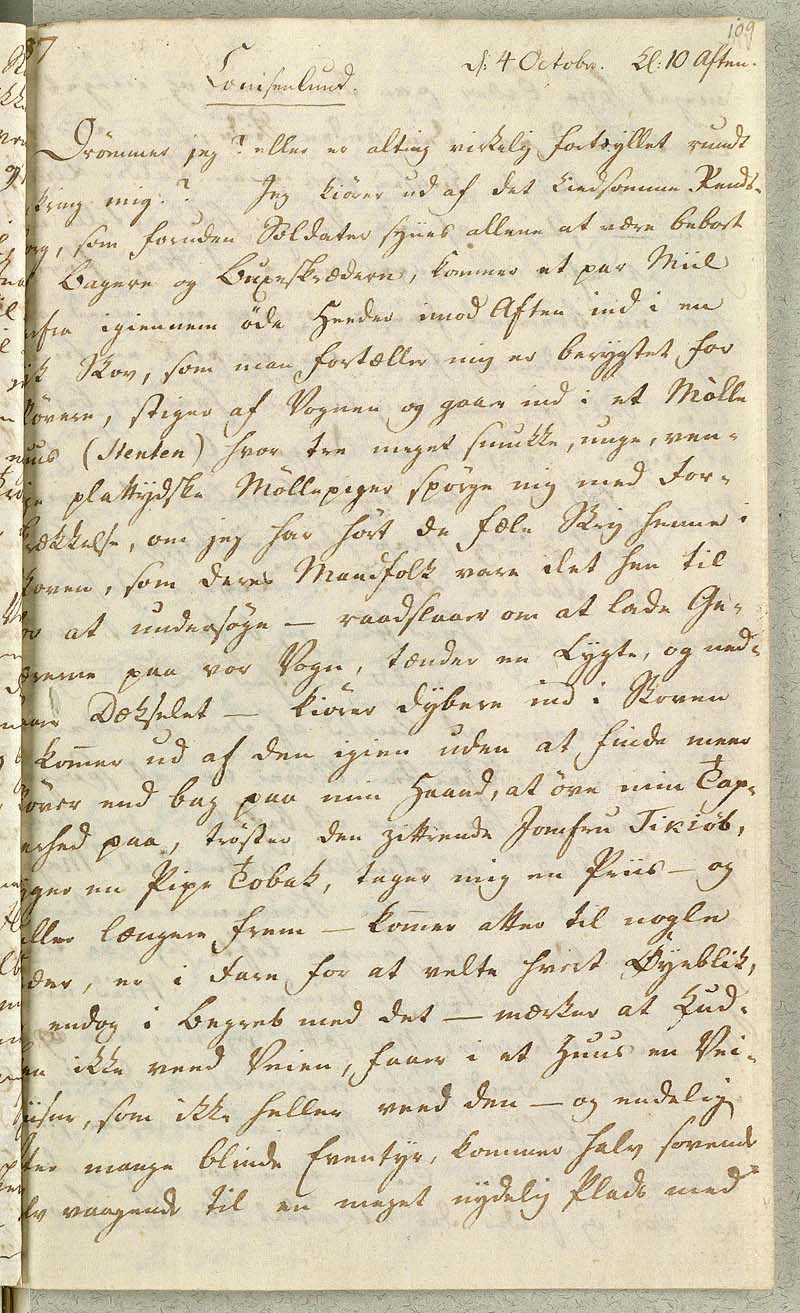 109
37
Louisenlund.
d: 4 Octobr. Kl: 10 Aften.
Drømmer jeg? eller er alting virkelig fortryllet rundt
kring mig.? Jeg kiører ud af det kiedsomme Rends-
org, som foruden Soldater synes allene at være beboet
Bagere og Buxeskrædere, kommer et par Miil
erfra igiennem øde Heeder imod Aften ind i en
Skov, som man fortæller mig er berygtet for
øvere, stiger af Vognen og gaaer ind i et Mølle
uus (Stenten) hvor tre meget smukke, unge, ven-
ge plattydske Møllepiger spørge mig med For-
ækkelse, om jeg har hørt de fæle Skrig henne i
koven, som deres Mandfolk vare ilet hen til
or at undersøge — raadslaaer om at lade Ge-
ærerne paa vor Vogn, tænder en Lygte, og ned-
laaer Dækselet — kiører dybere ind i Skoven
kommer ud af den igien uden at finde meer
øver end bag paa min Haand, at øve min Tap-
erhed paa, trøster den zittrende Jomfru Tikiøb,
yger en Pipe Tobak, tager mig en Priis — og
iller længere frem — kommer atter til nogle
der, er i Fare for at velte hvert Øyeblik,
endog i Begreb med det — mærker at Kud-
en ikke veed Veien, faaer i et Huus en Vei-
iiser, som ikke heller veed den — og endelig
ter mange blinde Eventyr, kommer halv sovende
lv vaagende til en meget nydelig Plads med